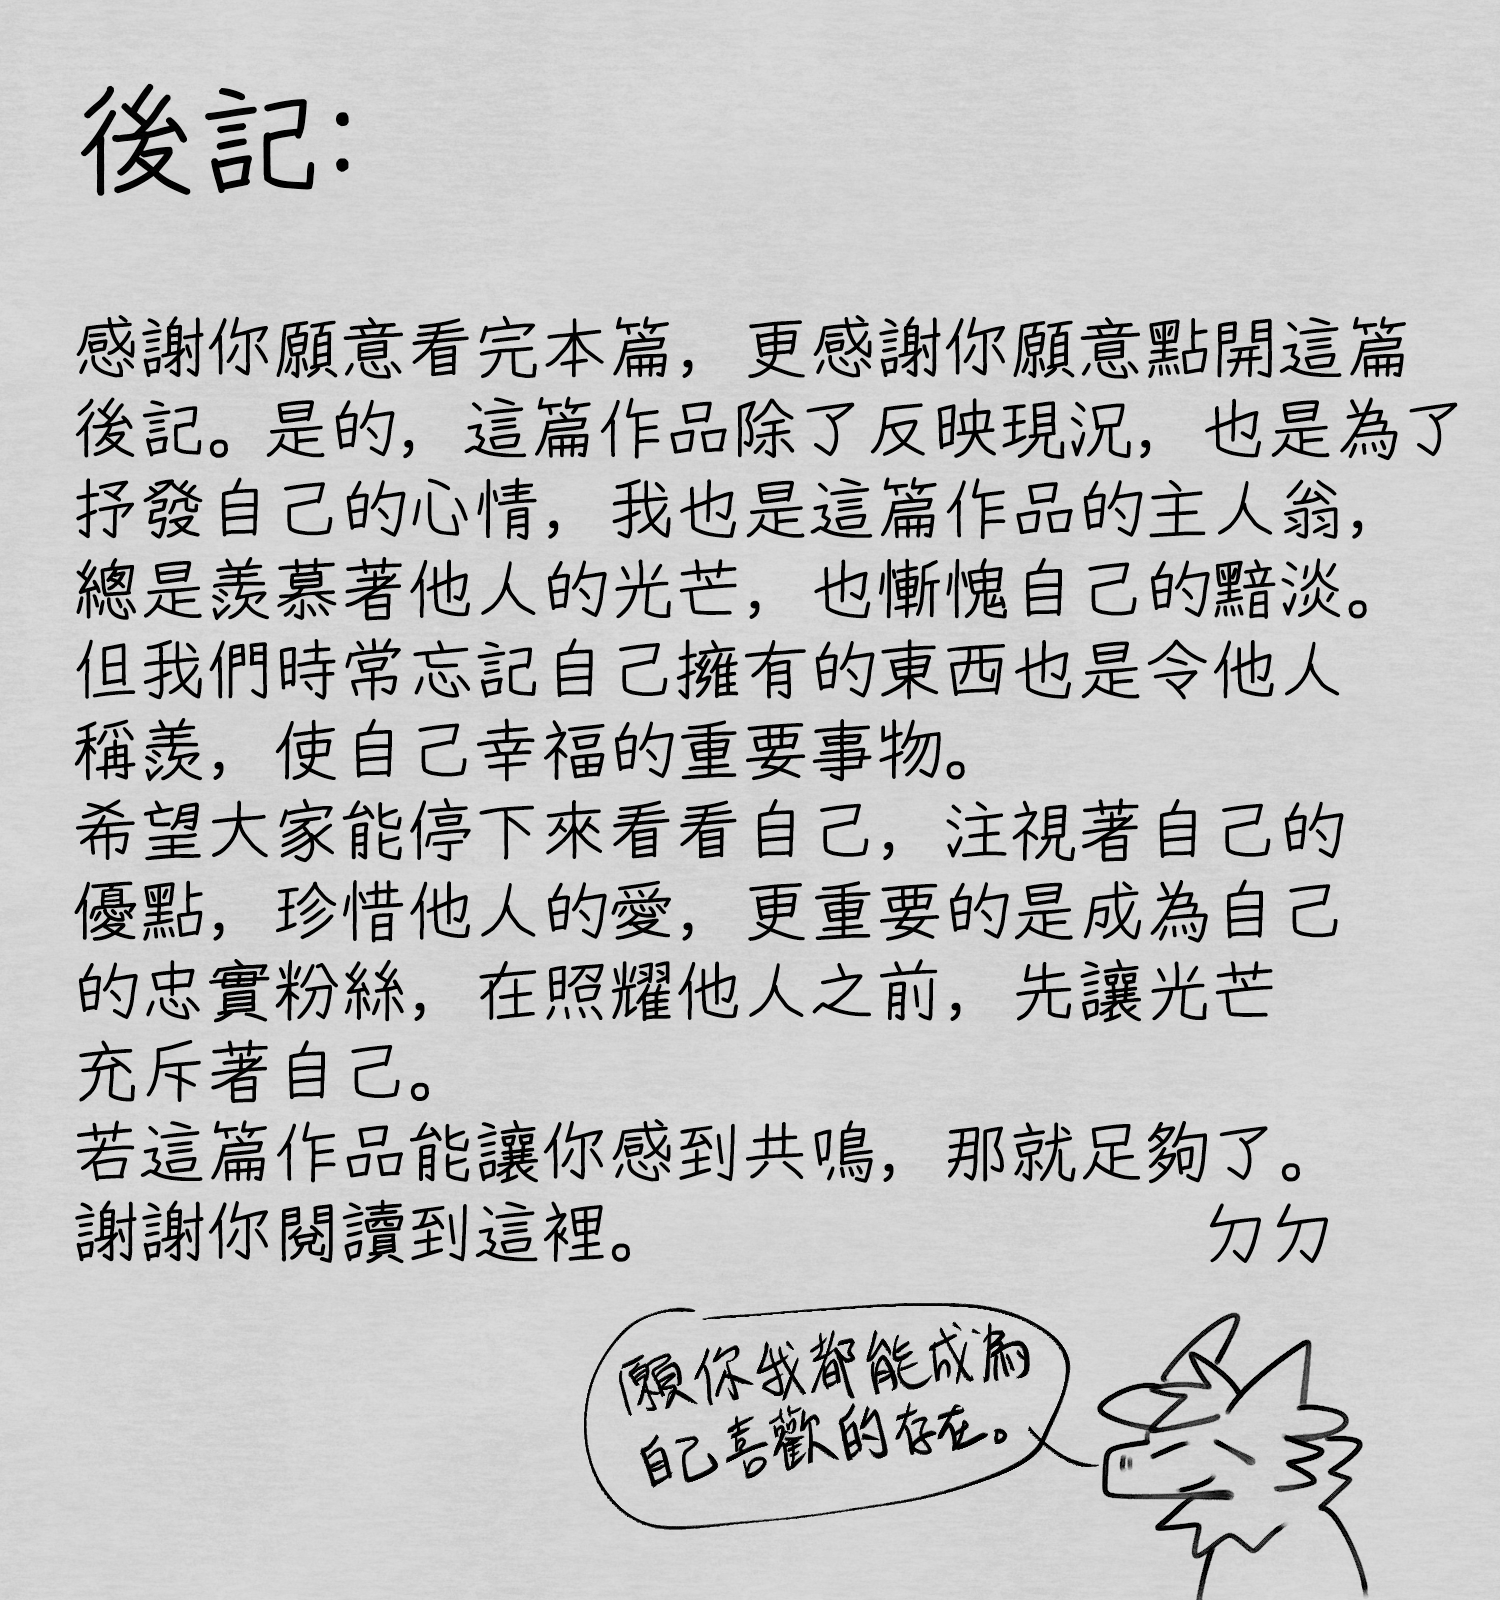 後記:
感謝你願意看完本篇，更感謝你願意點開這篇
後記。是的，這篇作品除了反映現況，也是為了
抒發自己的心情，我也是這篇作品的主人翁，
總是羨慕著他人的光芒，也慚愧自己的黯淡。
但我們時常忘記自己擁有的東西也是令他人
稱羨，使自己幸福的重要事物。
希望大家能停下來看看自己，注視著自己的
優點，珍惜他人的愛，更重要的是成為自己
的忠實粉絲，在照耀他人之前，先讓光芒
充斥著自己。
若這篇作品能讓你感到共鳴，那就足夠了。
謝謝你閱讀到這裡。 ㄉㄉ
願你我都能成為
自己喜歡的存在。